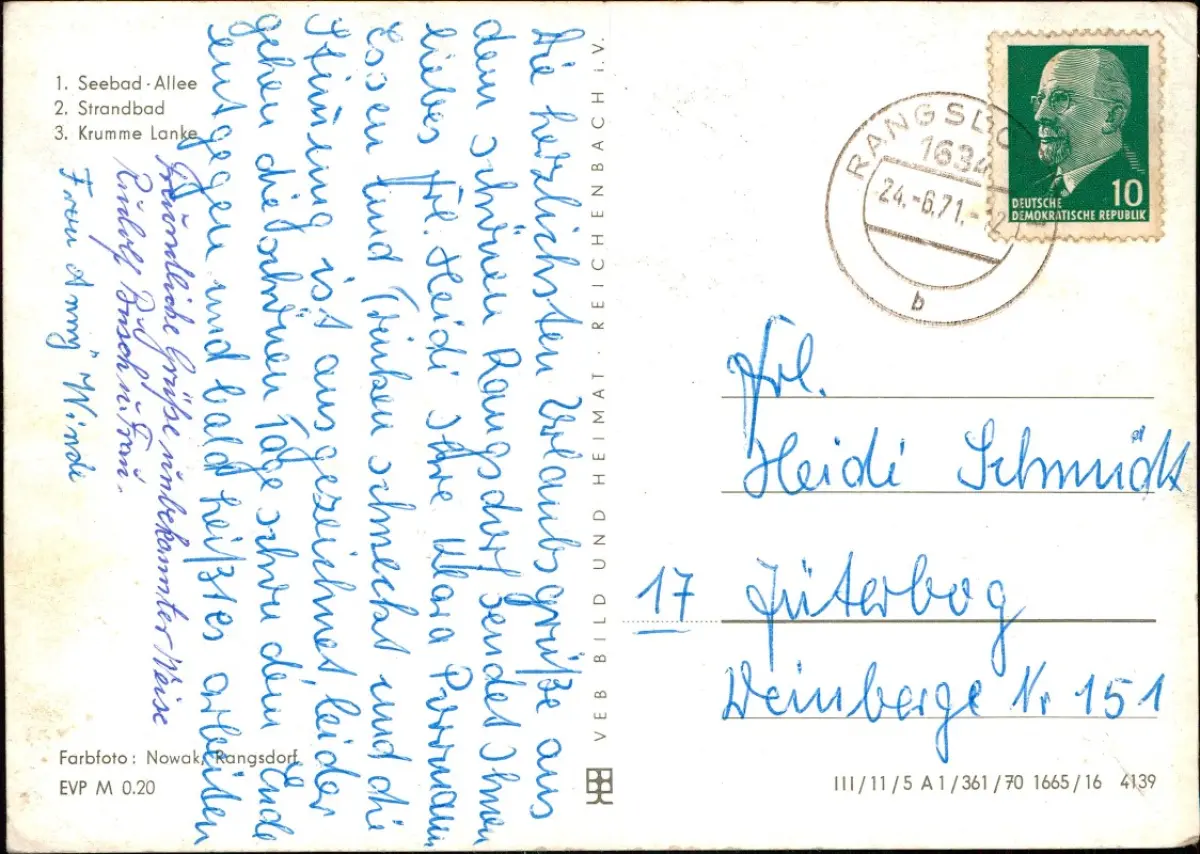 1. Seebad-Allee
2. Strandbad
3. Krumme Lanke
Die herzlichsten Urlaubsgrüße aus
dem schönen Rangsdorf sendet Ihnen
liebes Frl. Heidi Ihre Klara
Essen und Trinken schmeckt und die
Stimmung ist ausgezeichnet leider
gehen die schönen Tage schon dem Ende
entgegen und bald heißt es arbeiten
Freundliche Grüße unbekannter Weise
Rudolf Busch u. Frau.
Frau Anny Winde
Farbfoto: Nowak, Rangsdorf
EVP M 0.20
VEB BILD UND HEIMAT · REICHENBACH i.V.
RANGSDO
1634
24.-6.71.-12
b
10
DEUTSCHE
DEMOKRATISCHE REPUBLIK
Frl.
Heidi Schmidt
17 Jüterbog
Weinberge Nr 151
III/11/5 A 1/361/70 1665/16 4139